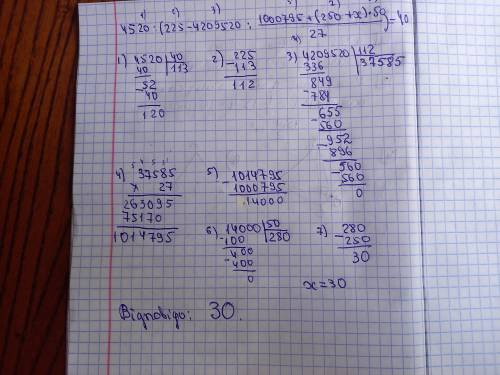 1) 2) 3) 5) 2) 1)
4520 : (225 - 4209520 : 1000795 + (250 + x) · 50 / 27) = 40
4)
1) 4520 | 40
40 | 113
- 52
40
120
2) - 225
113
112
3) 4209520 | 112
336 | 37585
849
- 784
- 655
560
- 952
896
- 560
560
0
4) 37585
× 27
263095
75170
1014795
5) - 1014795
1000795
14000
6) - 14000 | 50
100 | 280
- 400
400
0
7) - 280
250
30
x = 30
Відповідь: 30.